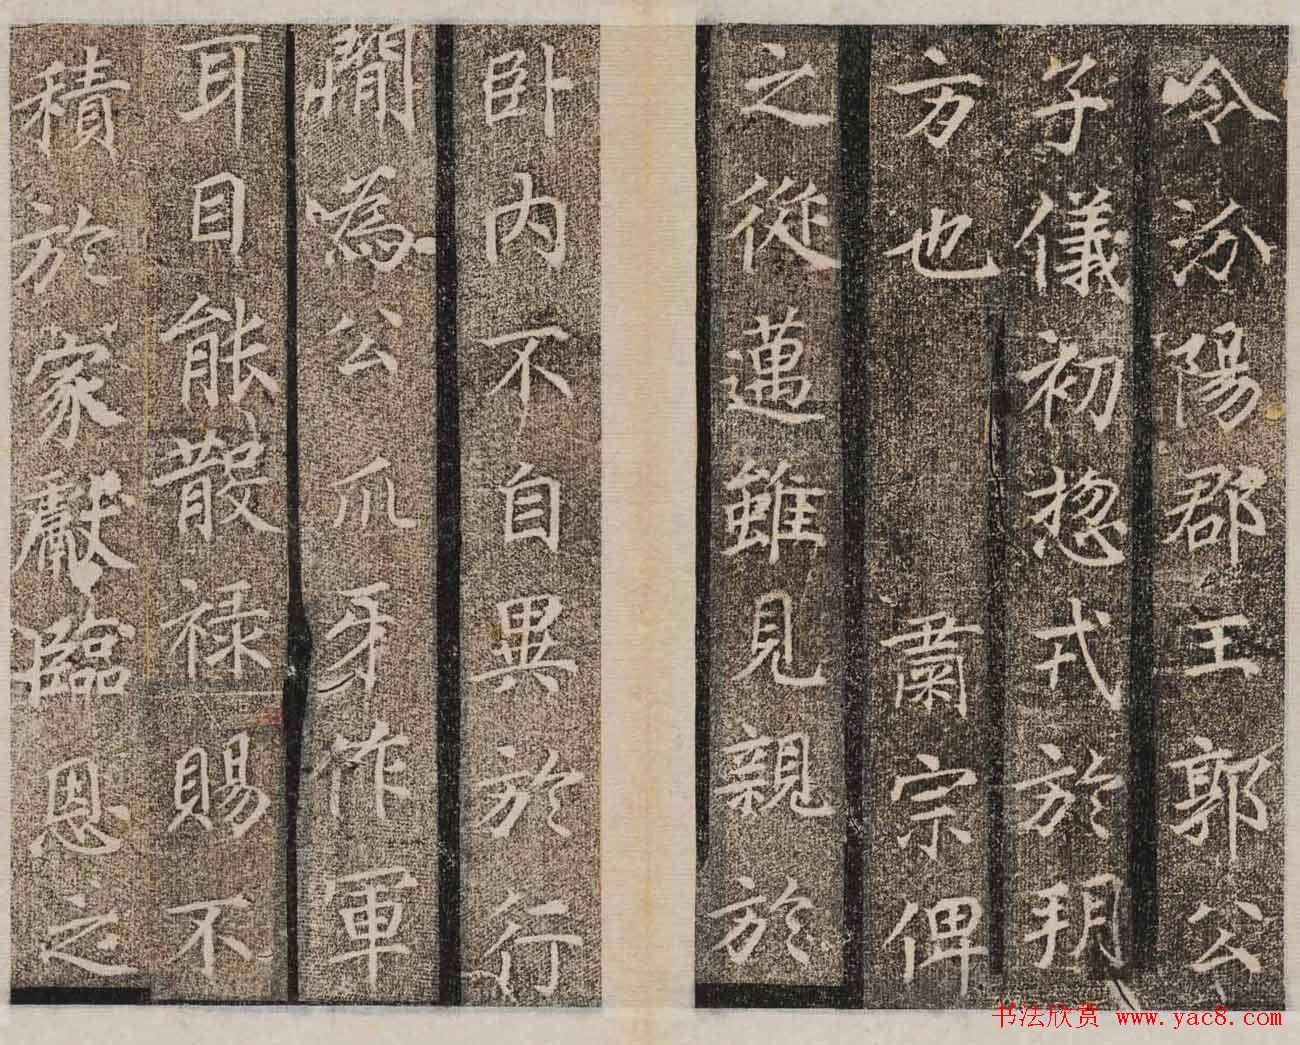 令汾陽郡王郭公
子儀初揔戎於朔
方也肅宗俾
之從邁雖見親於
卧内不自異於行
間為公爪牙作軍
耳目能散禄賜不
積於家獻臨恩之
书法欣赏 www.yac8.com